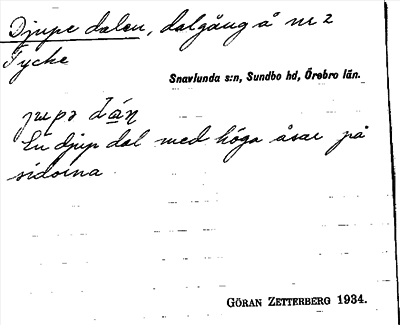 Djupe dalen, dalgång å nr 2
Tycke
Snavlunda s:n, Sundbo hd, Örebro län.
jupə dán
En djup dal med höga åsar på
sidorna
GÖRAN ZETTERBERG 1934.